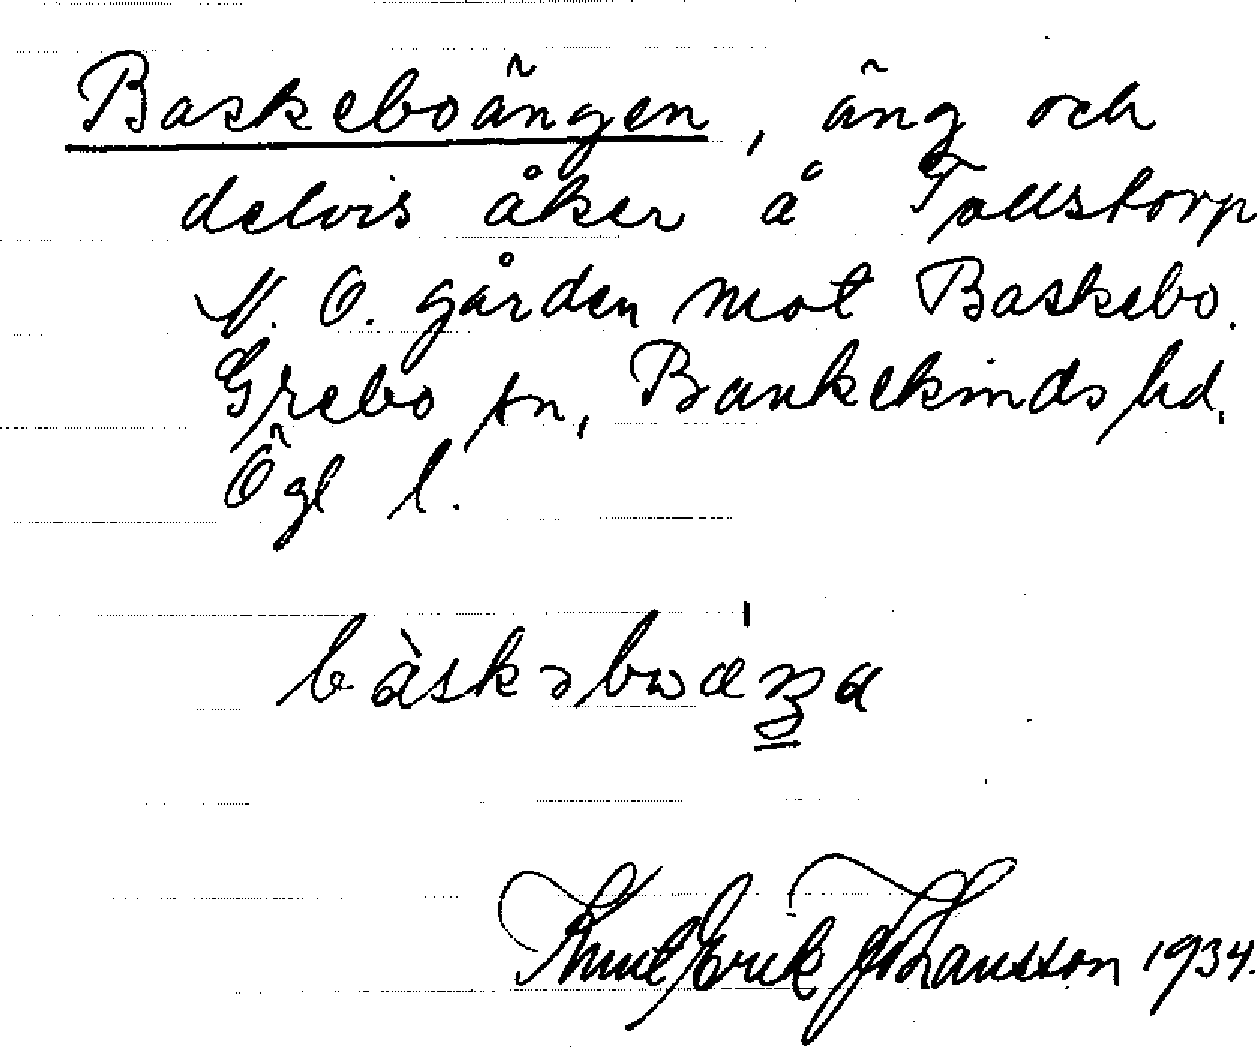 Baskeboängen, äng och
delvis åker å Tollstorp
N. O. gården mot Baskebo.
Grebo sn, Bankekinds hd.
Ögl l.
bàskəbωæŋa
Knut Erik Johansson 1934.